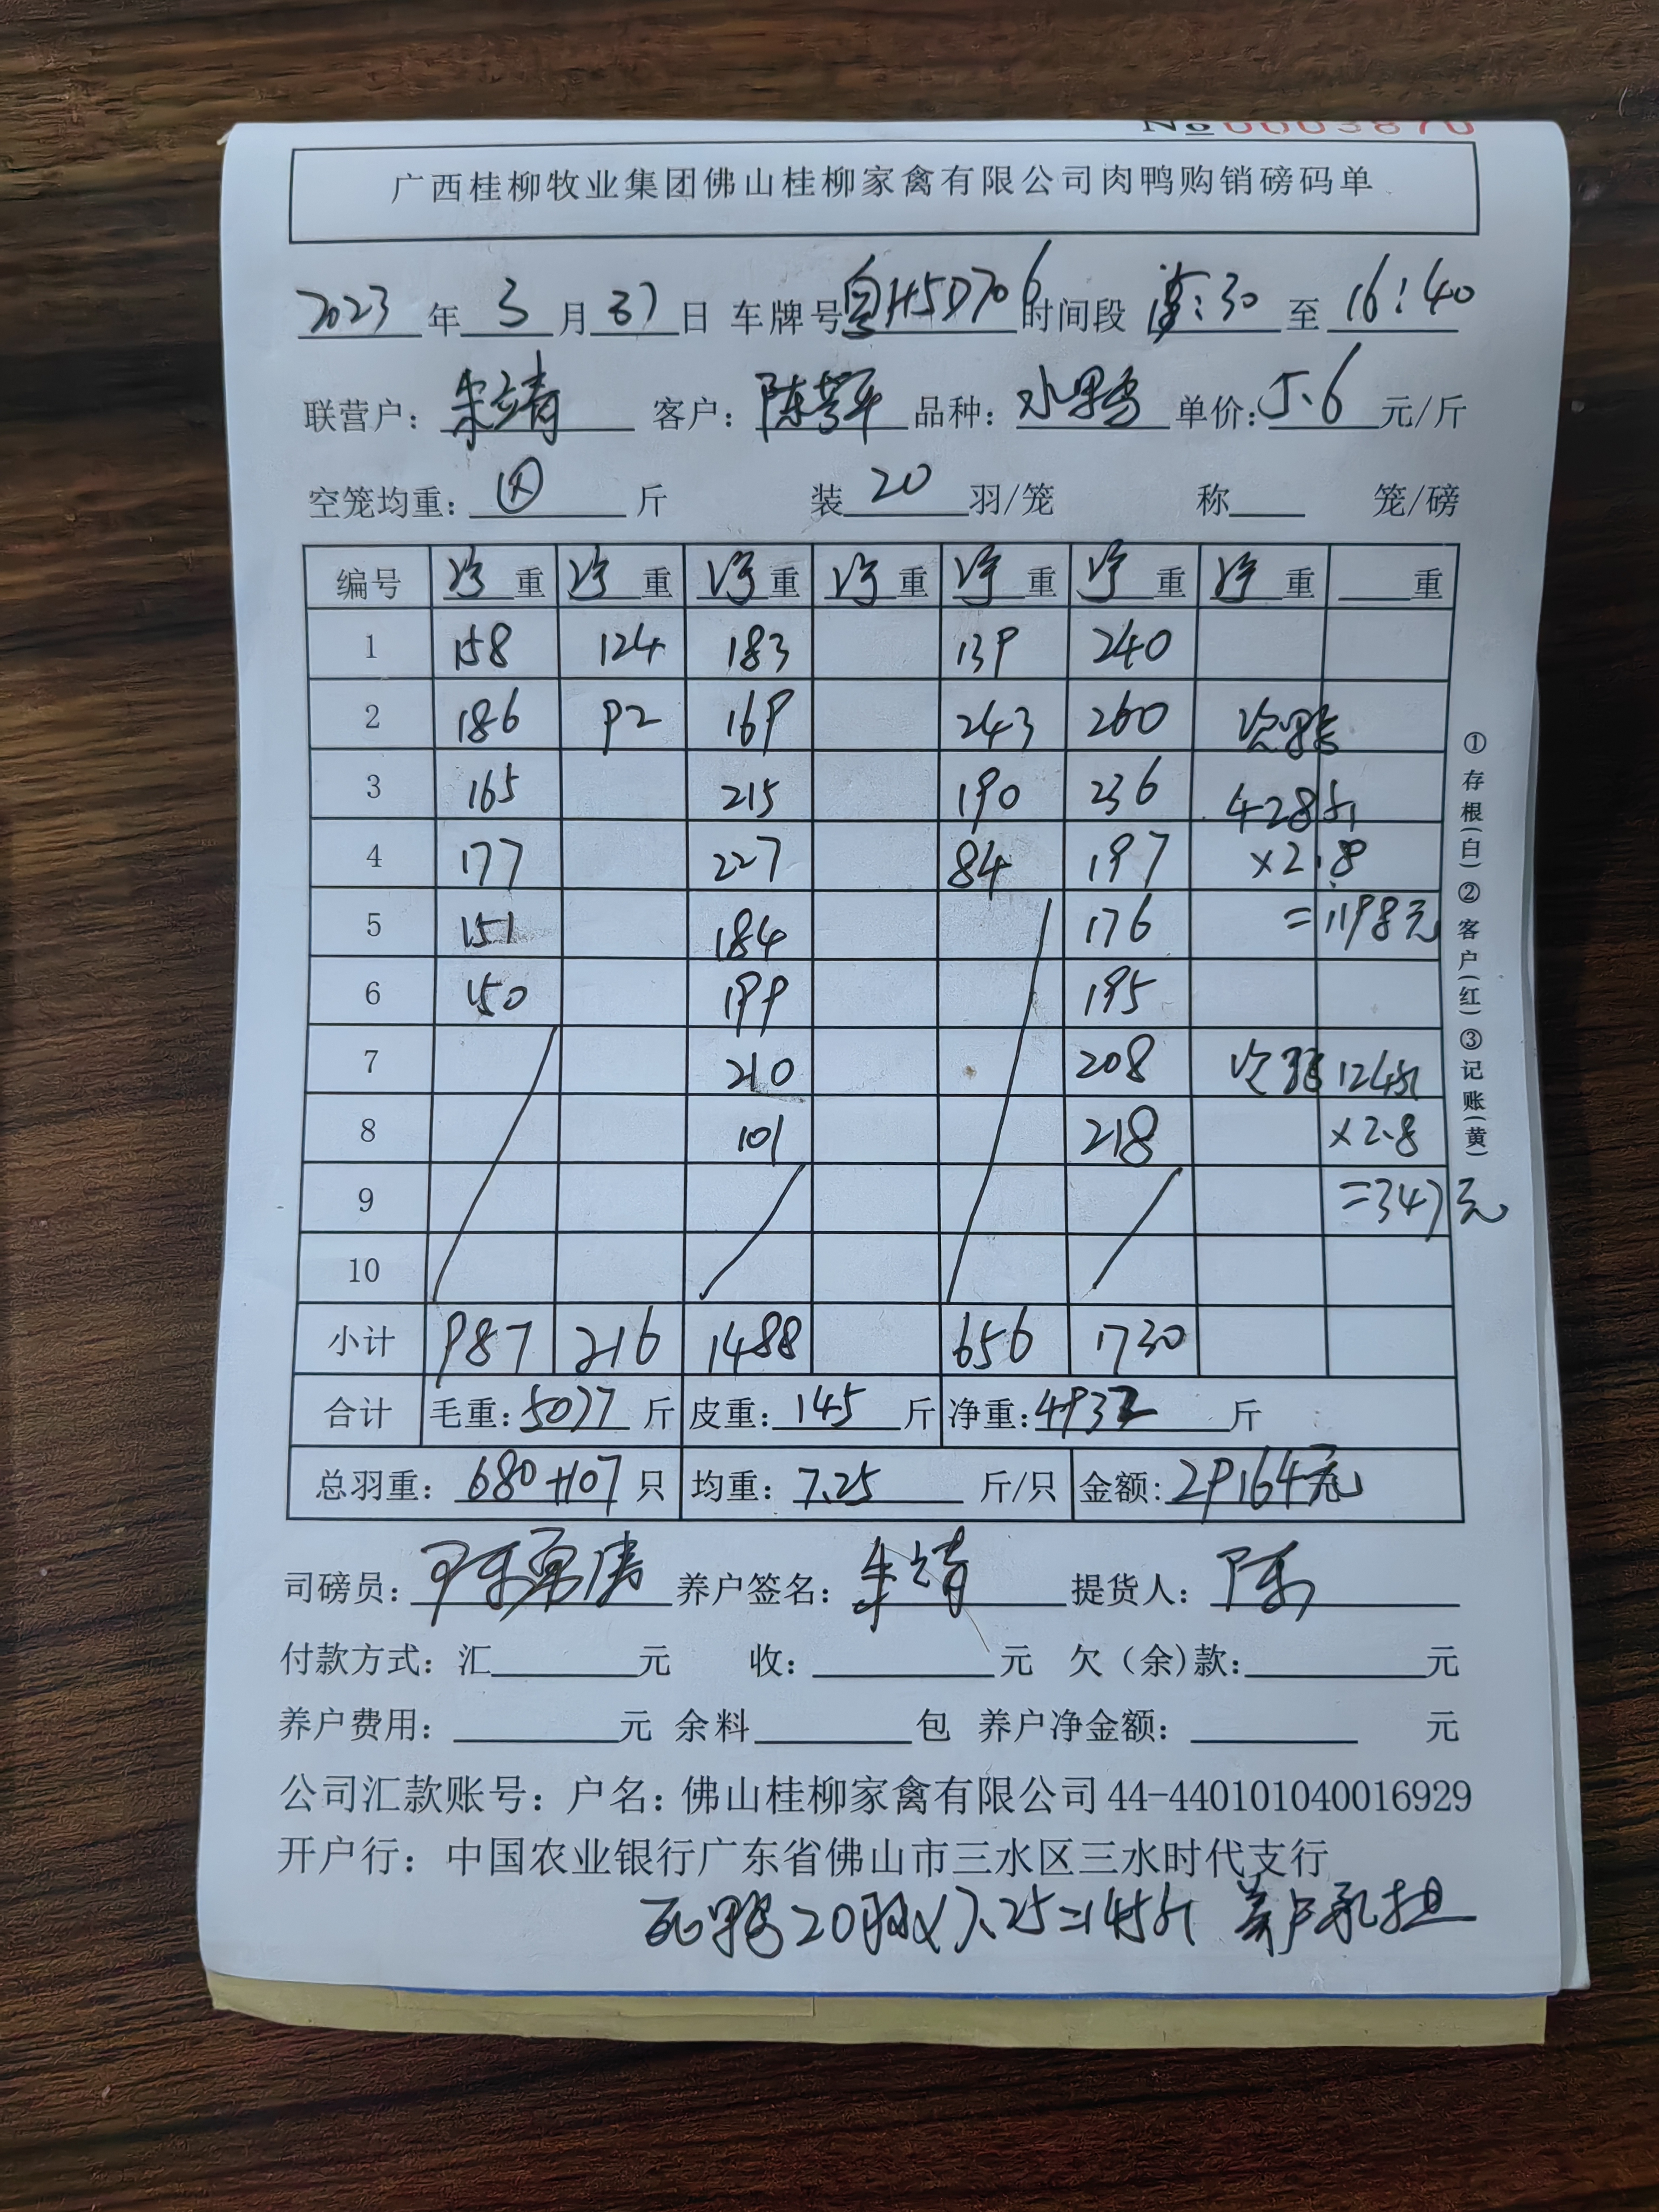 №0003870
广西桂柳牧业集团佛山桂柳家禽有限公司肉鸭购销磅码单
2023年3月 日 车牌号粤H5D706时间段 :30至16:40
联营户：朱靖 客户：陈 平 品种：水鸭 单价：5.6元/斤
空笼均重： 斤 装20羽/笼 称 笼/磅
编号 净重 净重 净重 净重 净重 净重 净重 重
1 158 124 183 139 240
2 186 92 169 243 260 次鸭
3 165 215 190 236 428斤
4 177 227 84 197 ×2.8
5 151 184 176 =1198元
6 150 199 195
7 210 208 次鸭124斤
8 101 218 ×2.8
9 =347元
10
小计 987 216 1488 656 1730
合计 毛重：5077斤 皮重：145斤 净重：4932斤
总羽重：680+107只 均重：7.25斤/只 金额：29164元
司磅员：陈 养户签名：朱靖 提货人：陈
付款方式：汇 元 收： 元 欠（余)款： 元
养户费用： 元 余料 包 养户净金额： 元
公司汇款账号：户名：佛山桂柳家禽有限公司44-440101040016929
开户行：中国农业银行广东省佛山市三水区三水时代支行
死鸭20羽×7.25=145斤 养户承担
①存根(白)②客户(红)③记账(黄)